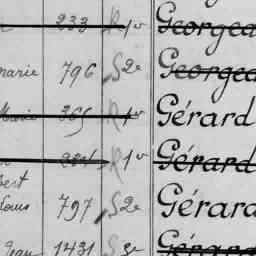 233 R 1º Georgea
marie 796 S 2e Georgea
Marie 365 R 1º Gérard
R 1º Gérard
bert
Louis 797 S 2e Gérard
Jean 1431 S 3e Gérard